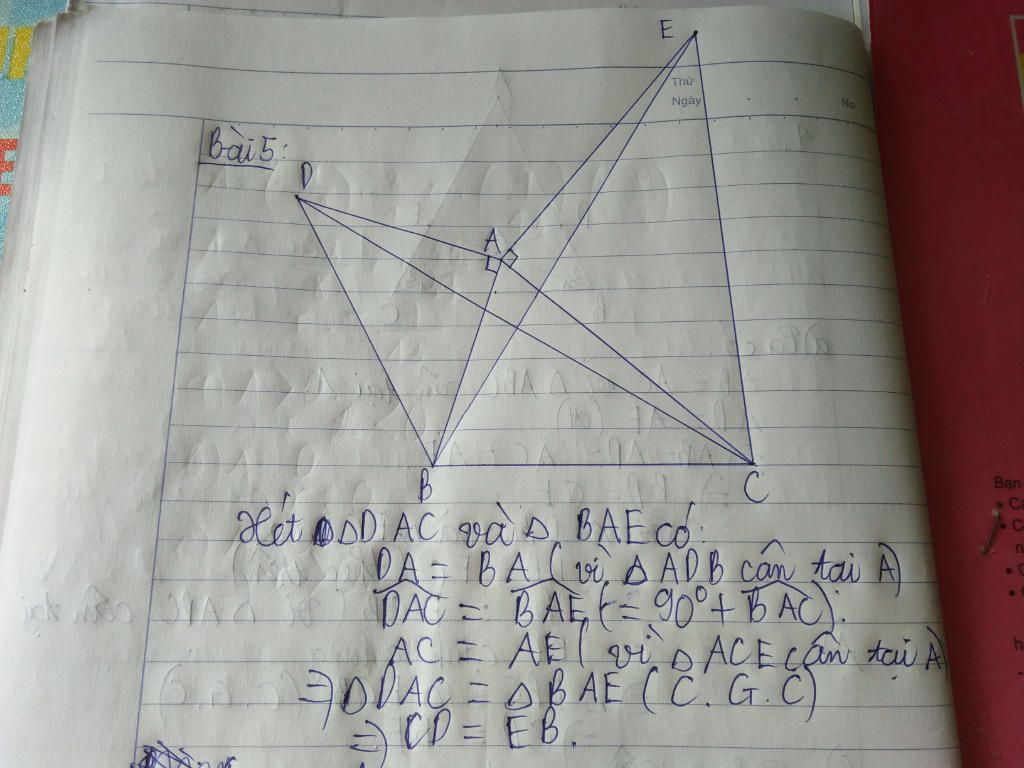 E
Thứ
Ngày
No.
Bài 5:
D
A
B
C
Xét ΔDAC và Δ BAE có:
DA = BA (vì Δ ADB cân tại A)
DAC = BAE (= 90° + BAC).
AC = AE (vì Δ ACE cân tại A)
=> ΔDAC = ΔBAE (C.G.C)
=> CD = EB.
Ban